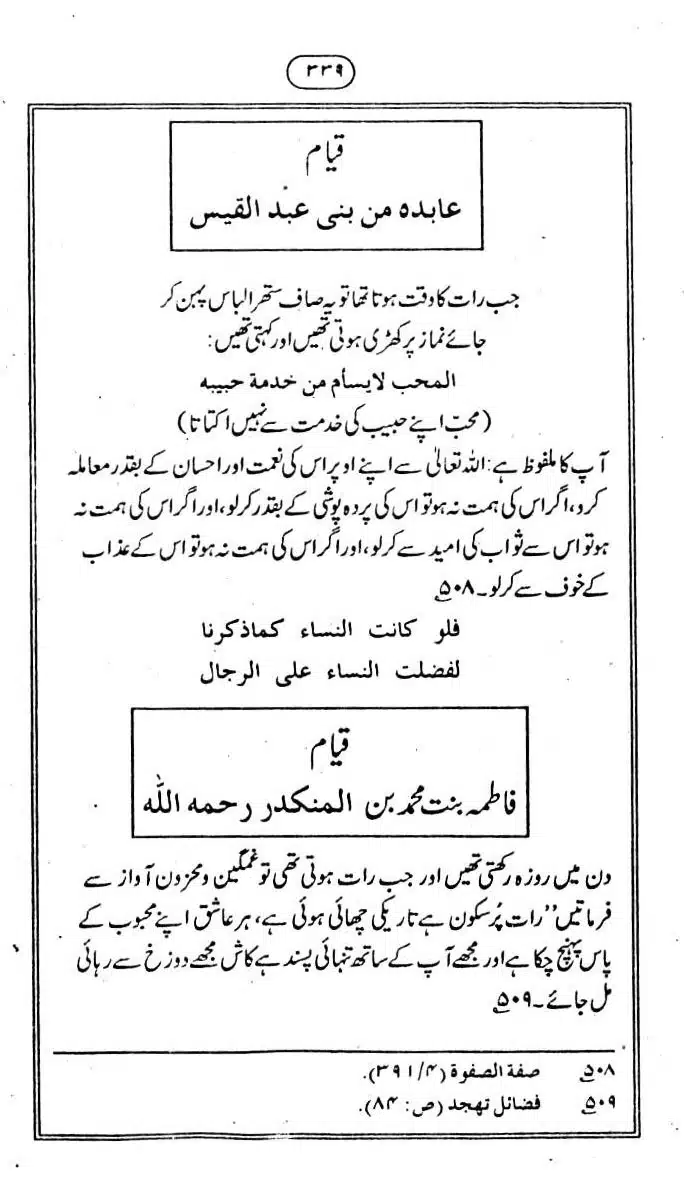 ۳۳۹
قیام
عابده من بنی عبد القیس
جب رات کا وقت ہوتا تھا تو یہ صاف ستھرا لباس پہن کر
جائے نماز پر کھڑی ہوتی تھیں اور کہتی تھیں:
المحب لا یسأم من خدمة حبیبه
(محبّ اپنے حبیب کی خدمت سے نہیں اکتاتا)
آپ کا ملفوظ ہے: اللہ تعالیٰ سے اپنے اوپر اس کی نعمت اور احسان کے بقدر معاملہ
کرو، اگر اس کی ہمت نہ ہو تو اس کی پردہ پوشی کے بقدر کرلو، اور اگر اس کی ہمت نہ
ہو تو اس سے ثواب کی امید سے کرلو، اور اگر اس کی ہمت نہ ہو تو اس کے عذاب
کے خوف سے کرلو۔ ۵۰۸
فلو كانت النساء كماذكرنا
لفضلت النساء على الرجال
قیام
فاطمہ بنت محمد بن المنکدر رحمه اللہ
دن میں روزہ رکھتی تھیں اور جب رات ہوتی تھی تو غمگین و محزون آواز سے
فرماتیں ’’رات پُرسکون ہے تاریکی چھائی ہوئی ہے، ہر عاشق اپنے محبوب کے
پاس پہنچ چکا ہے اور مجھے آپ کے ساتھ تنہائی پسند ہے کاش مجھے دوزخ سے رہائی
مل جائے۔ ۵۰۹
۵۰۸ صفة الصفوة (۳۹۱/۴).
۵۰۹ فضائل تهجد (ص: ۸۴).